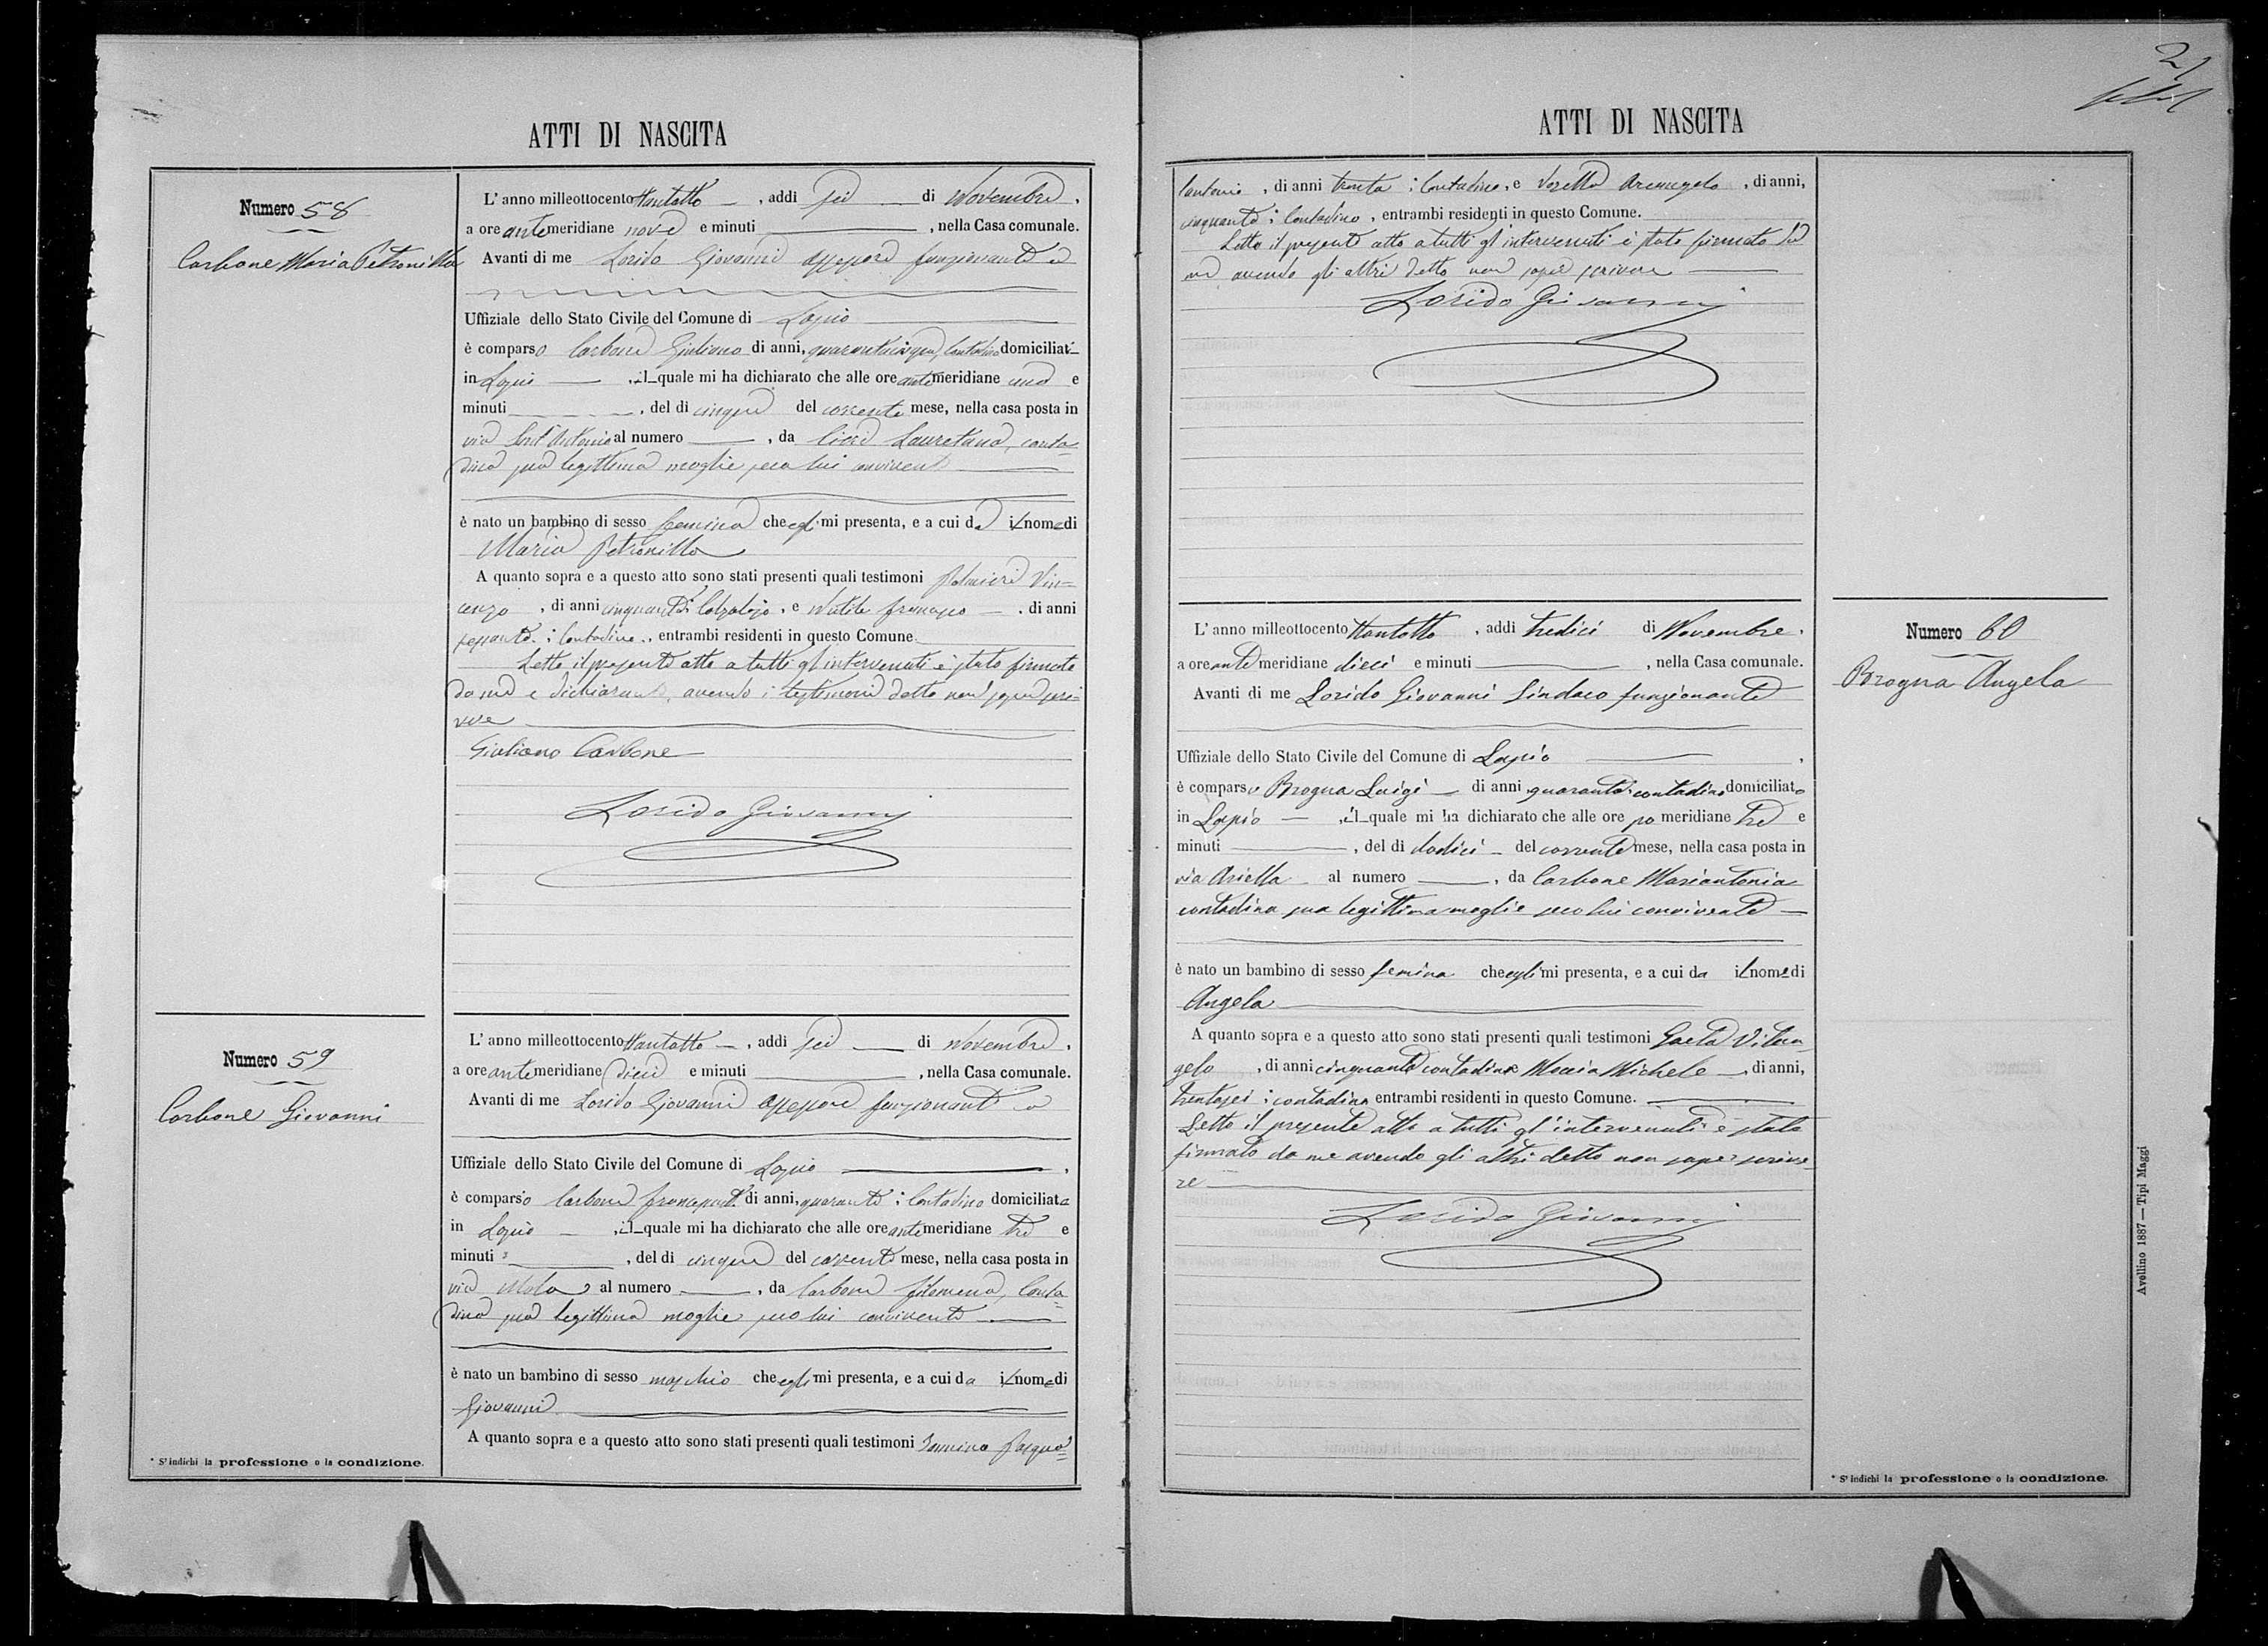 ATTI DI NASCITA
Numero 58
Carbone Maria Petronilla
L'anno milleottocento ttantotto, addì sei di Novembre,
a ore antemeridiane nove e minuti, nella Casa comunale.
Avanti di me Lorido Giovanni assessore funzionante da
Uffiziale dello Stato Civile del Comune di Lapio
è comparso Carbone Giuliano di anni, quarantacinque, Contadino domiciliat
in Lapio, il quale mi ha dichiarato che alle ore antemeridiane una e
minuti, del dì cinque del corrente mese, nella casa posta in
via Sant'Antonio al numero, da Lauretana, conta
dina sua legittima moglie seco lui convivente
è nato un bambino di sesso femina che egli mi presenta, e a cui da il nome di
Maria Petronilla
A quanto sopra e a questo atto sono stati presenti quali testimoni Palmieri Vin-
cenzo, di anni cinquanta Calzolajo, e Francesco, di anni
sessanta: Contadino, entrambi residenti in questo Comune.
Letto il presente atto a tutti gl'intervenuti è stato firmato
da me e dichiarante, avendo i testimoni detto non saper scri-
vere
Giuliano Carbone
Lorido Giovanni
Numero 59
Carbone Giovanni
L'anno milleottocento ttantotto, addì sei di Novembre,
a ore antemeridiane dieci e minuti, nella Casa comunale.
Avanti di me Lorido Giovanni assessore funzionante da
Uffiziale dello Stato Civile del Comune di Lapio.
è comparso Carbone di anni, quaranta: Contadino domiciliato
in Lapio, il quale mi ha dichiarato che alle ore antemeridiane tre e
minuti, del dì cinque del corrente mese, nella casa posta in
via Mola al numero, da Carbone Filomena, Conta
dina sua legittima moglie seco lui convivente
è nato un bambino di sesso maschio che egli mi presenta, e a cui da il nome di
Giovanni
A quanto sopra e a questo atto sono stati presenti quali testimoni Pasqua=
* S'indichi la professione o la condizione.
ATTI DI NASCITA
21
, di anni trenta: Contadino, e Arcangelo, di anni,
cinquanta: Contadino, entrambi residenti in questo Comune.
Letto il presente atto a tutti gl'intervenuti è stato firmato da
me avendo gli altri detto non saper scrivere
Lorido Giovanni
Numero 60
Brogna Angela
L'anno milleottocento ttantotto, addì tredici di Novembre.
a ore antemeridiane dieci e minuti, nella Casa comunale.
Avanti di me Lorido Giovanni Sindaco funzionante
Uffiziale dello Stato Civile del Comune di Lapio.
è comparso Brogna Luigi di anni quaranta: contadino domiciliato
in Lapio, il quale mi ha dichiarato che alle ore po meridiane tre e
minuti, del dì dodici del corrente mese, nella casa posta in
via Ariella al numero, da Carbone Mariantonia
contadina sua legittima moglie seco lui convivente
è nato un bambino di sesso femina che egli mi presenta, e a cui da il nome di
Angela
A quanto sopra e a questo atto sono stati presenti quali testimoni Gaeta Vitan
gelo, di anni cinquanta contadino e Michele, di anni,
trentasei: contadino entrambi residenti in questo Comune.
Letto il presente atto a tutti gl'intervenuti è stato
firmato da me avendo gli altri detto non saper scrive-
re
Lorido Giovanni
* S'indichi la professione o la condizione.
Avellino 1887—Tipi Maggi